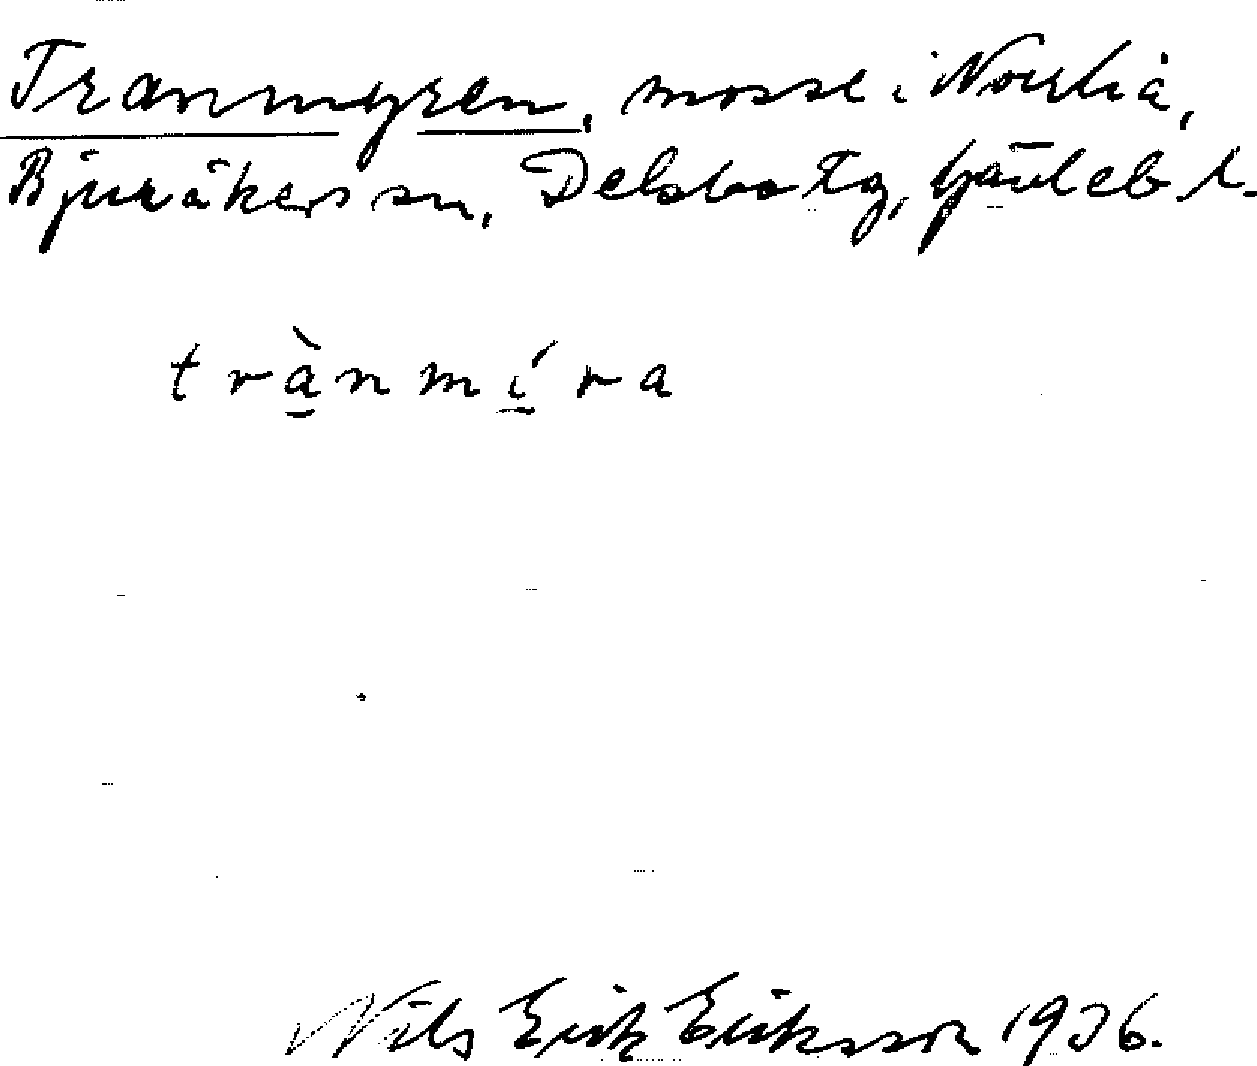 Tranmyren, mosse i Norrliå,
Bjuråkers sn, Delsbo tg, Gävleb l.
trànmíra
Nils Erik Eriksson 1936.